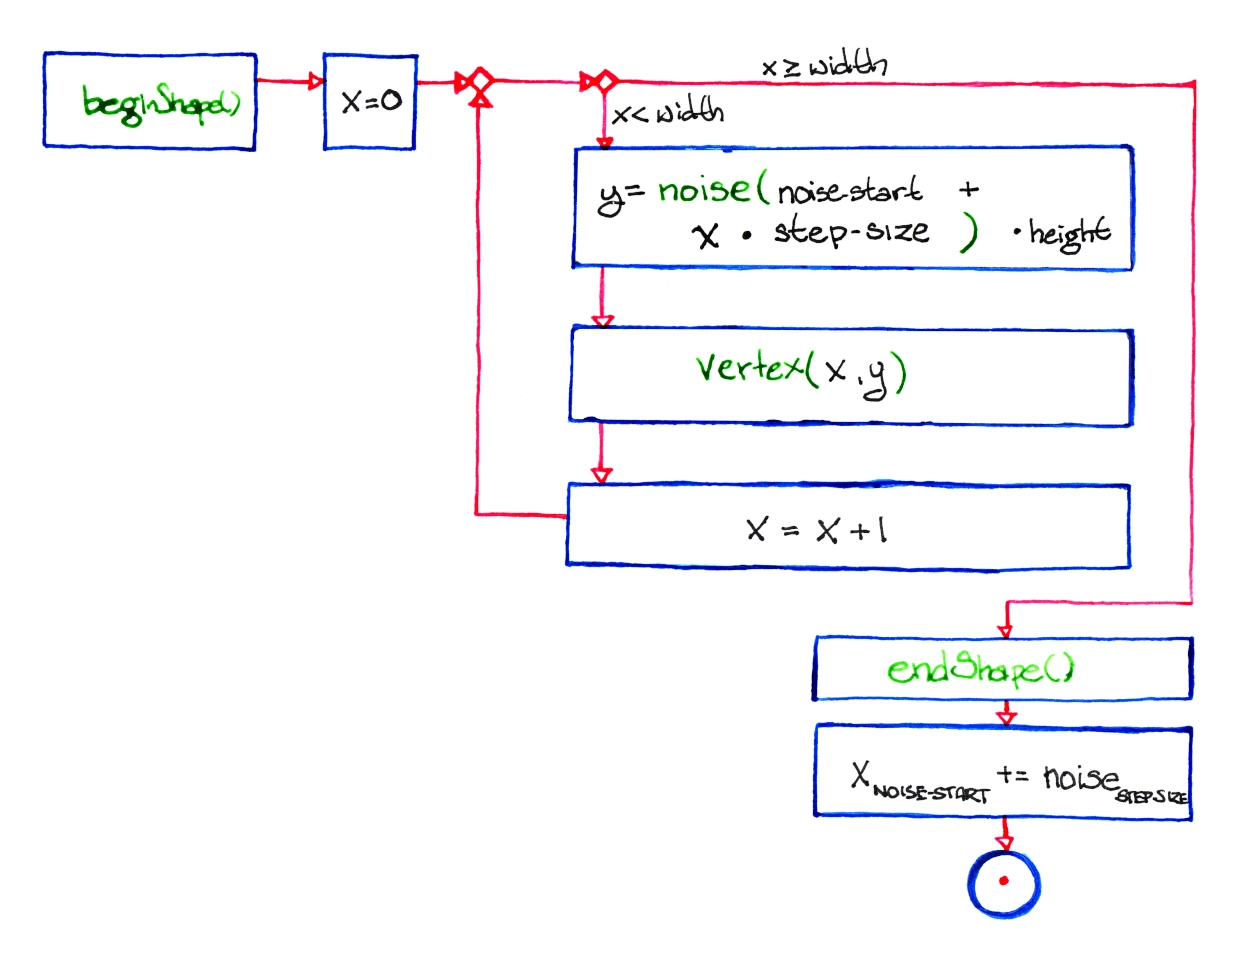 beginShape()
x=0
x ≥ width
x < width
y = noise( noise-start +
x • step-size ) • height
vertex( x , y )
x = x + 1
endShape()
X NOISE-START += noise STEPSIZE